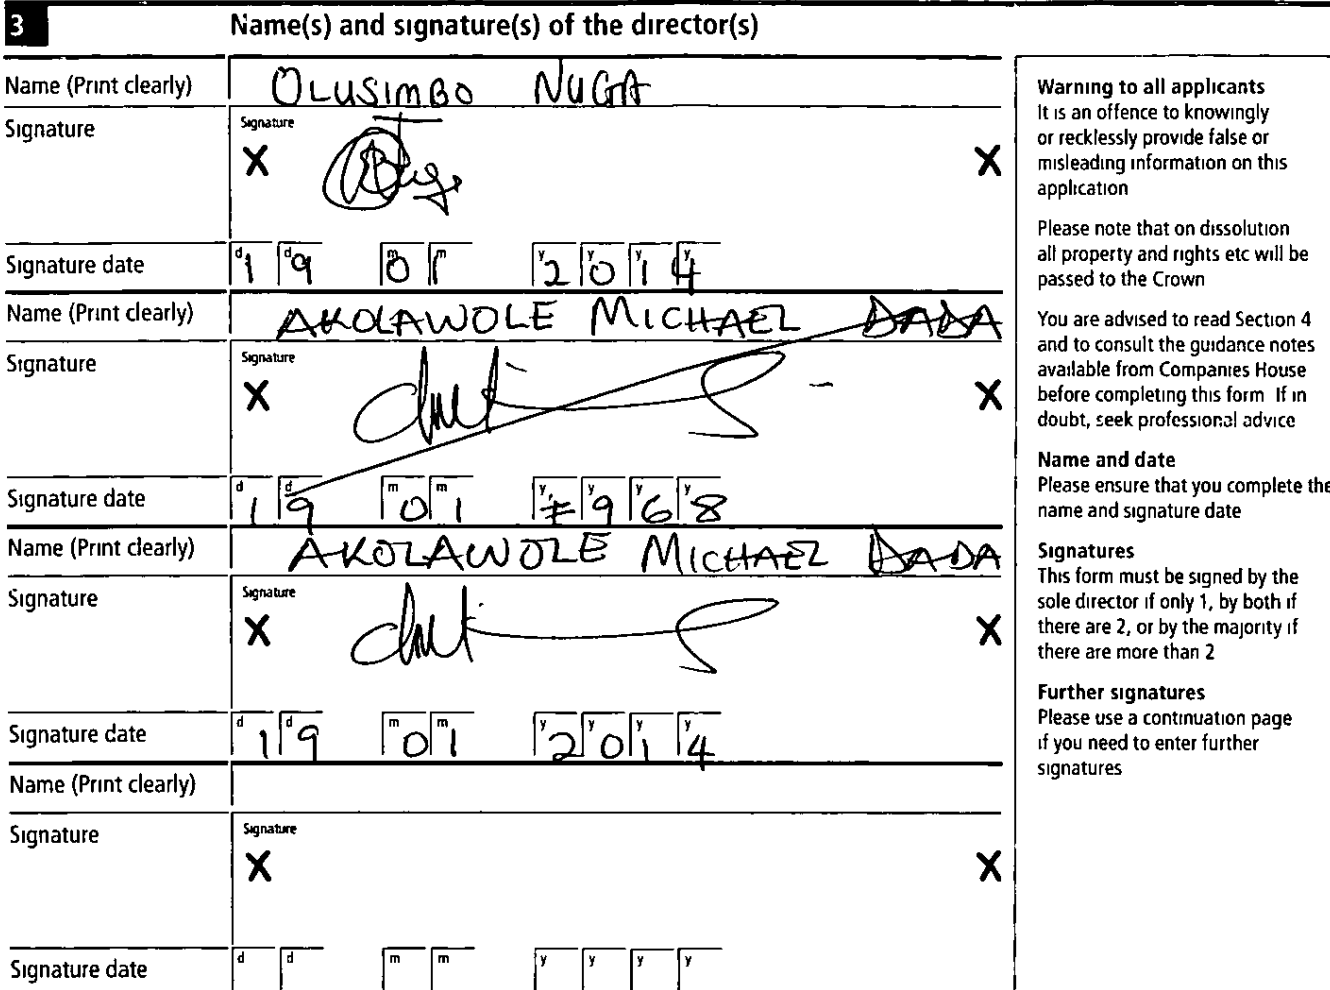 3 Name(s) and signature(s) of the director(s)
Name (Print clearly) OLUSIMBO NUGA
Signature Signature
X X
Signature date d1 d9 m0 m1 y2 y0 y1 y4
Name (Print clearly) AKOLAWOLE MICHAEL DADA
Signature Signature
X X
Signature date d1 d9 m0 m1 y y9 y6 y8
Name (Print clearly) AKOLAWOLE MICHAEL DADA
Signature Signature
X X
Signature date d1 d9 m0 m1 y2 y0 y1 y4
Name (Print clearly)
Signature Signature
X X
Signature date d d m m y y y y
Warning to all applicants
It is an offence to knowingly
or recklessly provide false or
misleading information on this
application
Please note that on dissolution
all property and rights etc will be
passed to the Crown
You are advised to read Section 4
and to consult the guidance notes
available from Companies House
before completing this form If in
doubt, seek professional advice
Name and date
Please ensure that you complete the
name and signature date
Signatures
This form must be signed by the
sole director if only 1, by both if
there are 2, or by the majority if
there are more than 2
Further signatures
Please use a continuation page
if you need to enter further
signatures